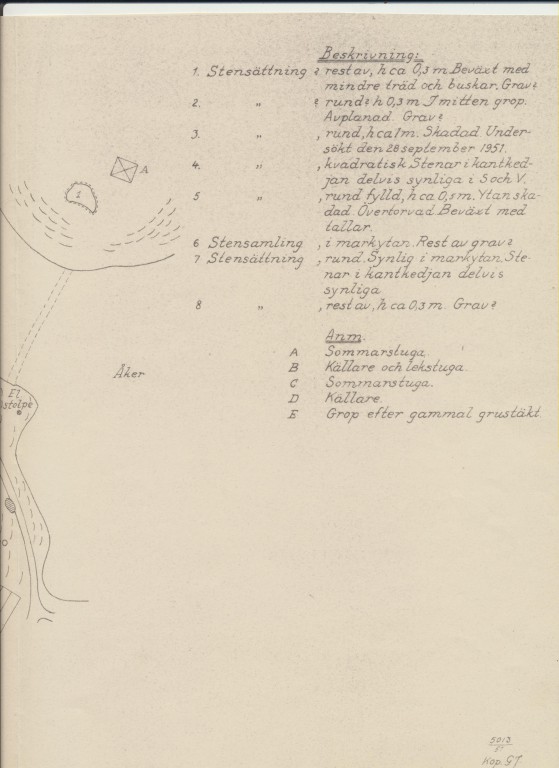 Beskrivning:
1. Stensättning ? rest av, h ca 0,3 m. Beväxt med
mindre träd och buskar. Grav?
2. „ ? rund? h 0,3 m. I mitten grop.
Avplanad. Grav?
3. „ , rund, h ca 1m. Skadad. Under-
sökt den 28 september 1951.
4. „ , kvadratisk. Stenar i kantked-
jan delvis synliga i S och V.
5 „ , rund fylld, h ca 0,5 m. Ytan ska-
dad. Övertorvad. Beväxt med
tallar.
6 Stensamling , i markytan. Rest av grav?
7 Stensättning , rund. Synlig i markytan. Ste-
nar i kantkedjan delvis
synliga.
8 „ , rest av, h ca 0,3 m. Grav?
Anm.
A Sommarstuga.
B Källare och lekstuga.
C Sommarstuga.
D Källare.
E Grop efter gammal grustäkt.
A
1
Åker
El.
stolpe
5013
Kop. GT.